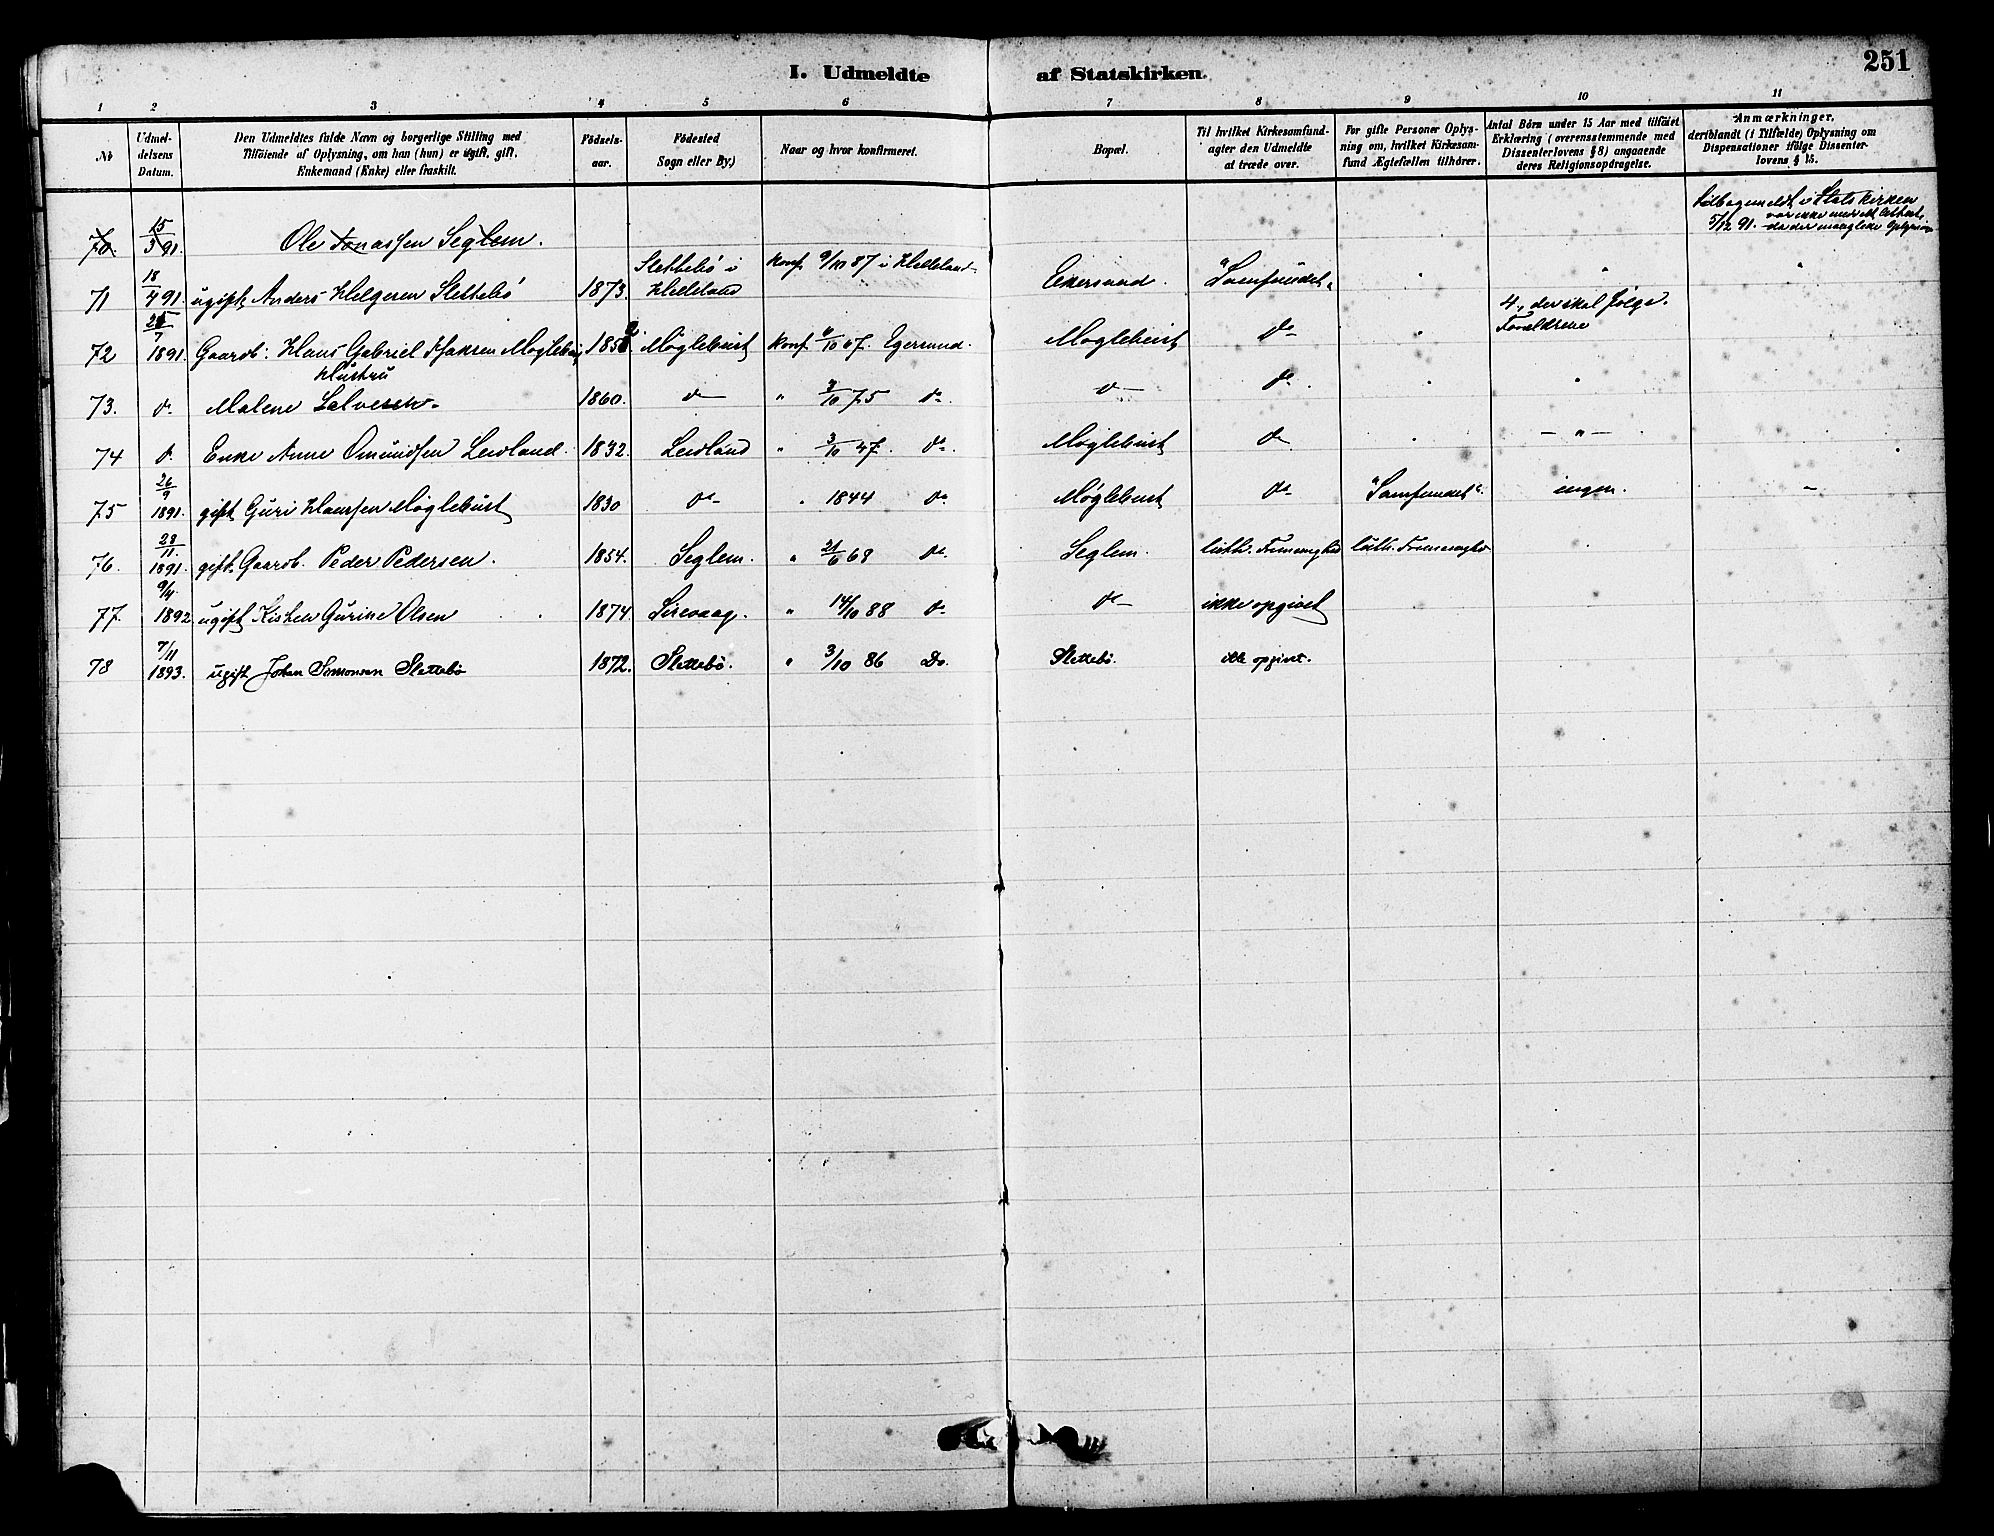 251
I. Udmeldte af Statskirken.
1 2 3 4 5 6 7 8 9 10 11
No
Udmeldelsens Datum.
Den Udmeldtes fulde Navn og borgerlige Stilling med
Tilföiende af Oplysning, om han (hun) er ugift, gift,
Enkemand (Enke) eller fraskilt.
Födselsaar.
Födested
Sogn eller By.)
Naar og hvor konfirmeret.
Bopæl.
Til hvilket Kirkesamfund-
agter den Udmeldte
at træde over.
For gifte Personer Oplys-
ning om, hvilket Kirkesam-
fund Ægtefællen tilhörer.
Antal Börn under 15 Aar med tilföiet
Erklæring (overensstemmende med
Dissenterlovens § 8) angaaende
deres Religionsopdragelse.
Anmærkninger,
deriblandt (i Tilfælde) Oplysning om
Dispensationer ifölge Dissenter-
lovens § 15.
70. 15/3 91. Ole Jonassen Seglem. Tilbagemeldt i Statskirken 5/12 91.
71 18/4 91. ugift Anders Helgesen Slettebö 1873. Slettebö i Helleland konf. 9/10 87 i Helleland Ekersund. "Samfundet"
72 1891. Gaardb. Hans Gabriel Möglebust Möglebust konf. 4/10 67. Egersund. Möglebust do 4, der skal fölge Forældrene
73. do Hustru Malene Salvesen. 1860. do " 3/10 75 do. do do
74 do Enke Anne Omundsen Leidland 1832. Leidland " 3/10 47. do. Möglebust do — " —
75 26/9 1891. gift Guri Hanssen Möglebust 1830 do " 1844 do Möglebust do "Samfundet". ingen. –
76. 28/11. 1891. gift. Gaardb. Peder Pedersen. 1854. Seglem. " 21/6 68 do. Seglem. luth. Frimenighed luth. Frimenighed
77. 9/4. 1892 ugift Kirsten Gurine Olsen 1874. Sirevaag. " 14/10 88 do. do ikke opgivet
78 7/11 1893. ugift Johan Simonsen Slettebö 1872. Slettebö. " 3/10 86 Do. Slettebö. ikke opgivet.